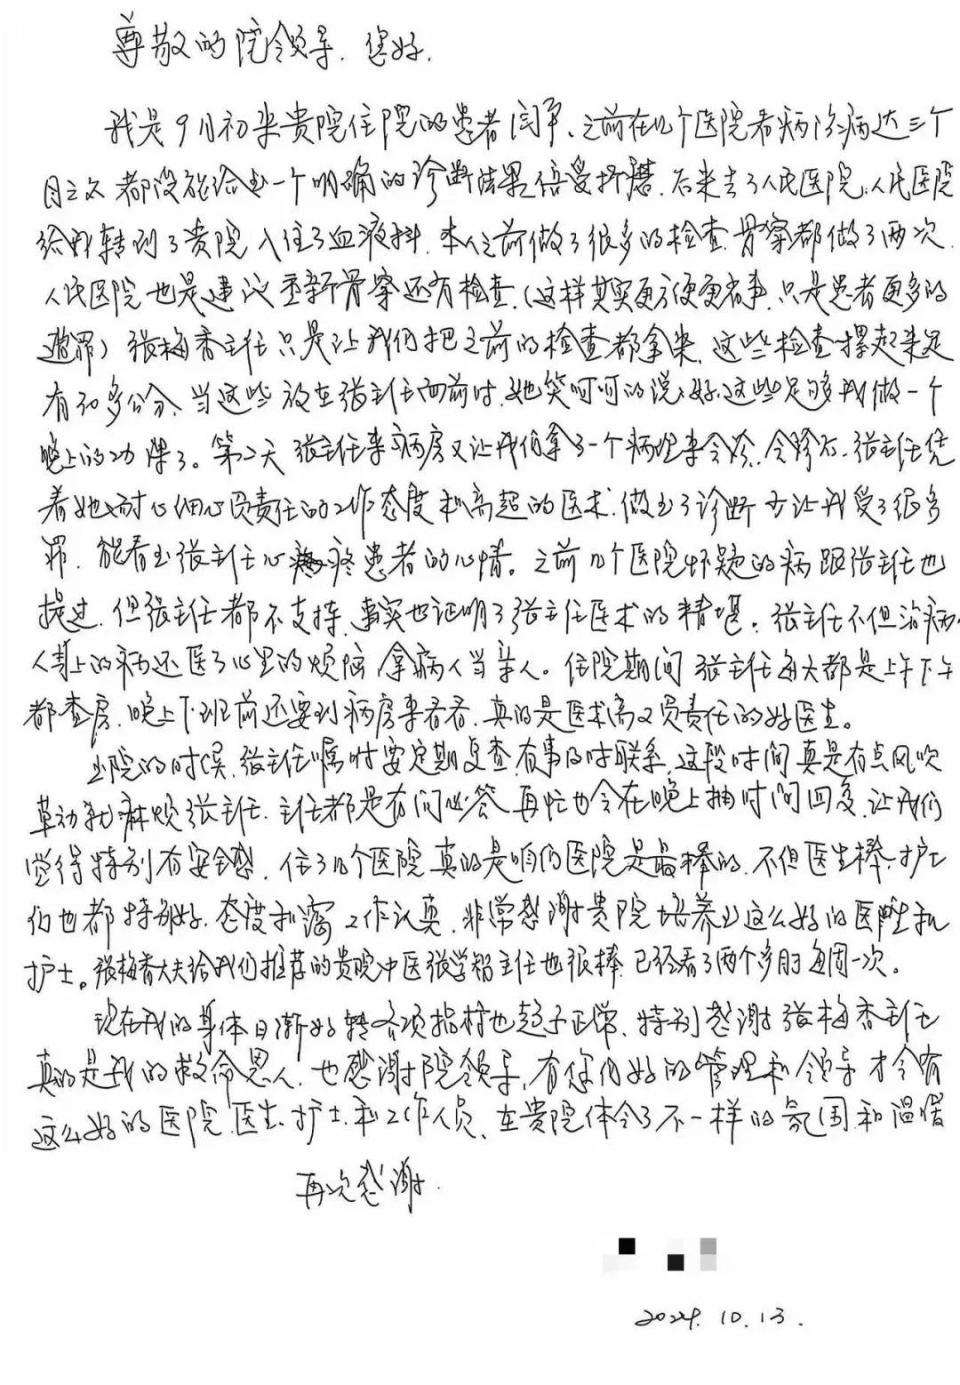 尊敬的院领导.您好.
我是9月初来贵院住院的患者闫军、之前在几个医院看病治病达三个
月之久都没能给出一个明确的诊断结果,倍受折磨.后来去了人民医院,人民医院
给我转到了贵院入住了血液科.本人之前做了很多的检查.骨穿都做了两次.
人民医院也是建议重新骨穿还有检查.(这样其实更方便更省事.只是患者更多的
遭罪)张梅香主任只是让我们把之前的检查都拿来.这些检查摞起来足
有30多公分、当这些放在张主任面前时.她笑呵呵的说:好,这些足够我做一个
晚上的功课了。第二天张主任来病房又让我们拿了一个病理来会诊.会诊后.张主任凭
着她耐心细心负责任的工作态度和高超的医术.做出了诊断少让我受了很多
罪.能看出张主任心疼患者的心情。之前几个医院怀疑的病跟张主任也
提过.但张主任都不支持.事实也证明了张主任医术的精堪。张主任不但治病
人身上的病还医了心里的烦恼,拿病人当亲人。住院期间张主任每天都是上午下午
都查房.晚上下班前还要到病房来看看.真的是医术高又负责任的好医生。
出院的时候.张主任嘱咐要定期复查,有事及时联系.这段时间真是有点风吹
草动就麻烦张主任.主任都是有问必答.再忙也会在晚上抽时间回复.让我们
觉得特别有安全感.住了几个医院真的是咱们医院是最棒的.不但医生棒.护士
们也都特别好.态度和蔼工作认真.非常感谢贵院培养出这么好的医生和
护士。张梅香大夫给我们推荐的贵院中医张学智主任也很棒.已经看了两个多月每周一次。
现在我的身体日渐好转各项指标也趋于正常.特别感谢张梅香主任
真的是我的救命恩人.也感谢院领导,有您们好的管理和领导才会有
这么好的医院.医生.护士.和工作人员、在贵院体会了不一样的氛围和温暖
再次感谢.
2024.10.13.